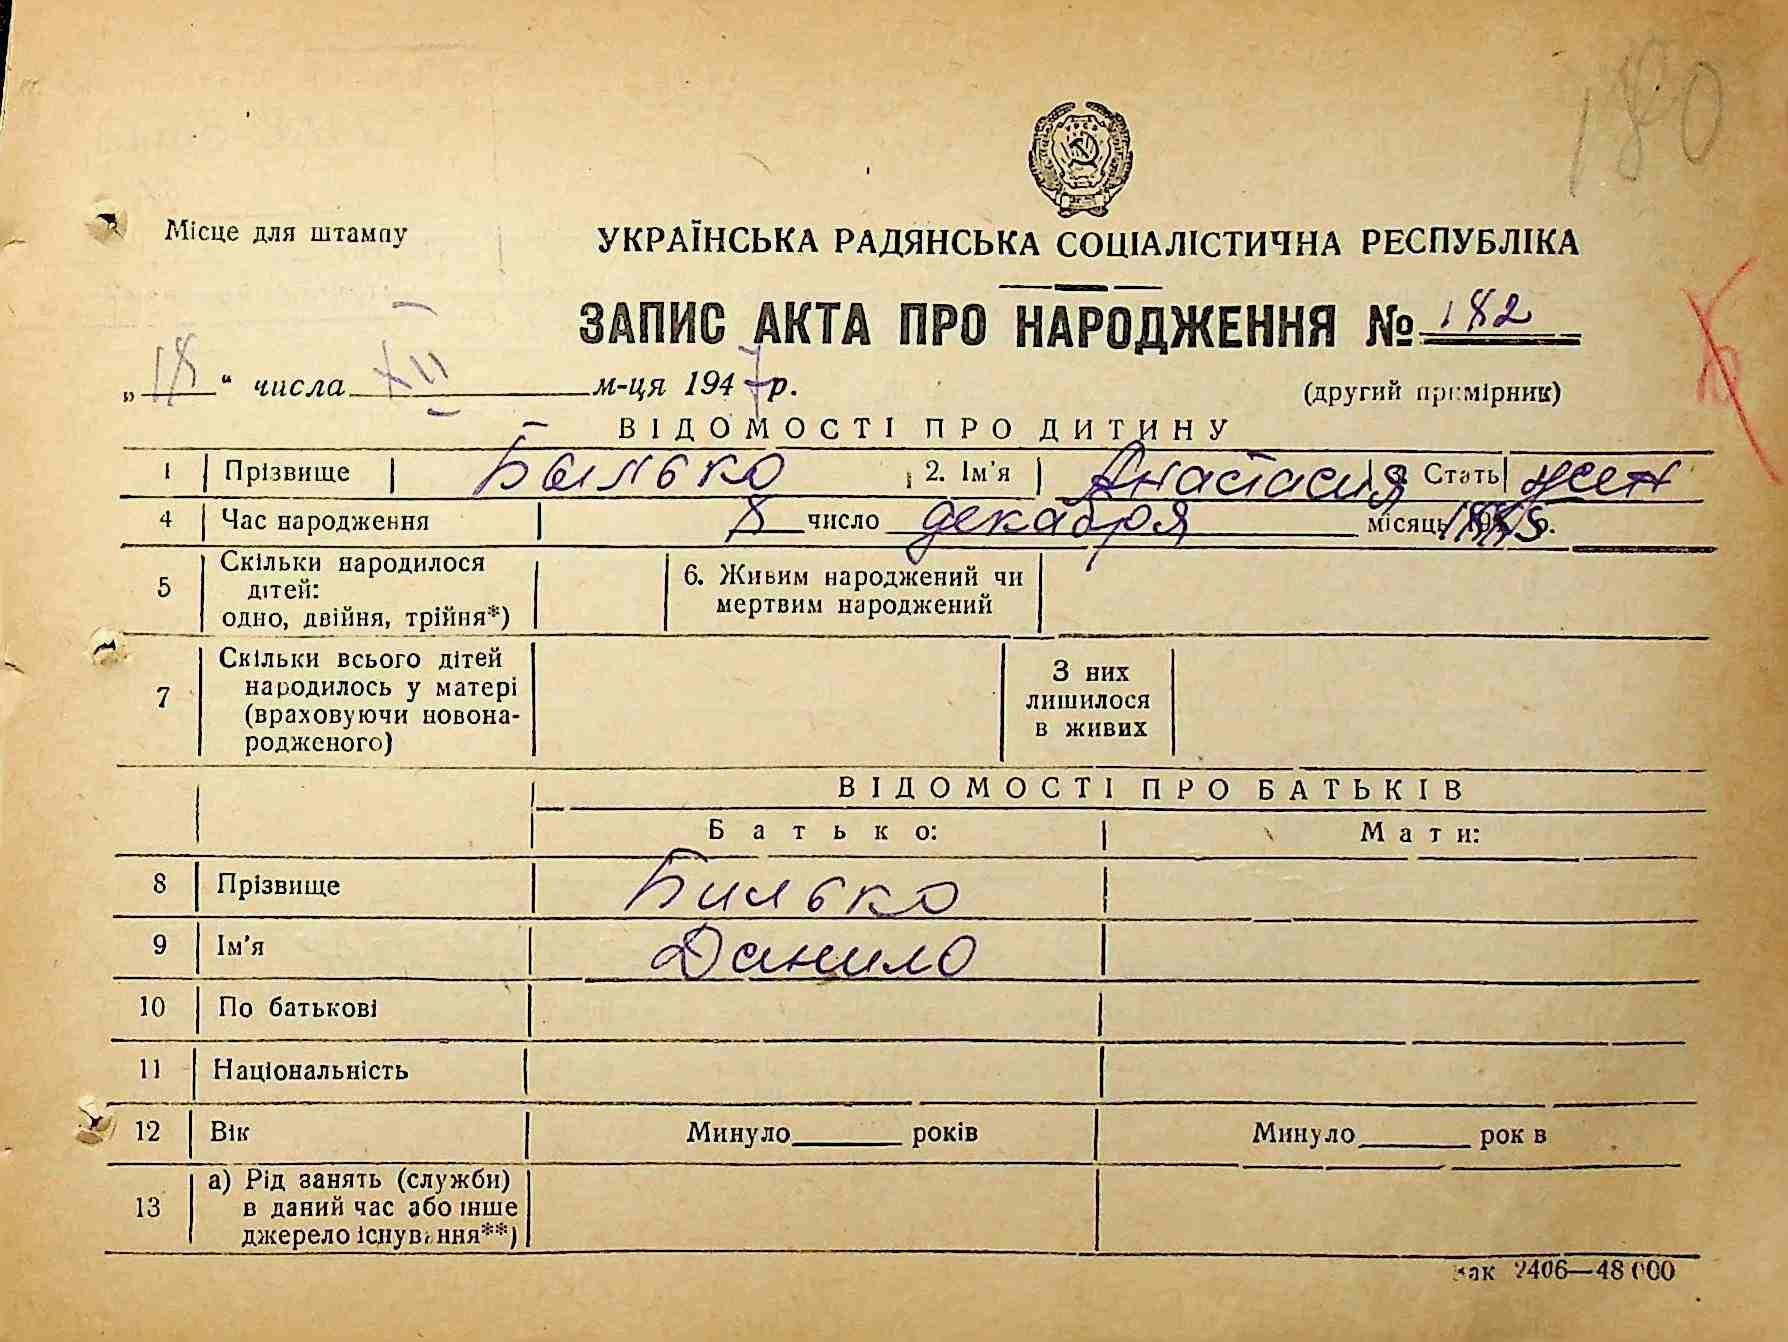 180
Місце для штампу
УКРАЇНСЬКА РАДЯНСЬКА СОЦІАЛІСТИЧНА РЕСПУБЛІКА
ЗАПИС АКТА ПРО НАРОДЖЕННЯ № 182
„18“ числа XII м-ця 1947 р.
(другий примірник)
ВІДОМОСТІ ПРО ДИТИНУ
1 Прізвище Былько 2. Ім'я Анастасия 3. Стать жен
4 Час народження 8 число декабря місяць р.
5 Скільки народилося дітей: одно, двійня, трійня*)
6. Живим народжений чи мертвим народжений
7 Скільки всього дітей народилось у матері (враховуючи новона-родженого)
З них лишилося в живих
ВІДОМОСТІ ПРО БАТЬКІВ
Батько: Мати:
8 Прізвище Билько
9 Ім'я Данило
10 По батькові
11 Національність
12 Вік Минуло років Минуло рок в
13 а) Рід занять (служби) в даний час або інше джерело існування**)
зак 2406—48 000